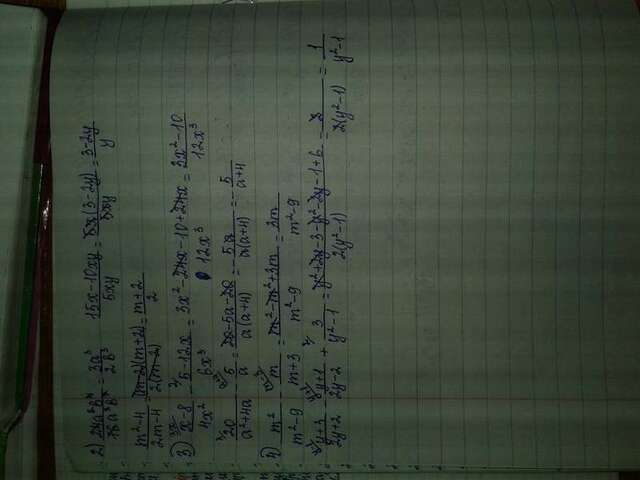 2) 24a⁸b⁴/16a⁵b⁷ = 3a³/2b³   15x-10xy/5xy = 5x(3-2y)/5xy = 3-2y/y
m²-4/2m-4 = (m-2)(m+2)/2(m-2) = m+2/2
3) x-8/4x² - 5-12x/6x³ = 3x²-24x-10+24x/12x³ = 3x²-10/12x³
20/a²+4a - 5/a = 20-5a-20/a(a+4) = -5a/a(a+4) = -5/a+4
4) m²/m²-9 - m/m+3 = m²-m²+3m/m²-9 = 3m/m²-9
y+3/2y+2 - y+1/2y-2 + 3/y²-1 = y²+2y-3-y²-2y-1+6/2(y²-1) = 2/2(y²-1) = 1/y²-1